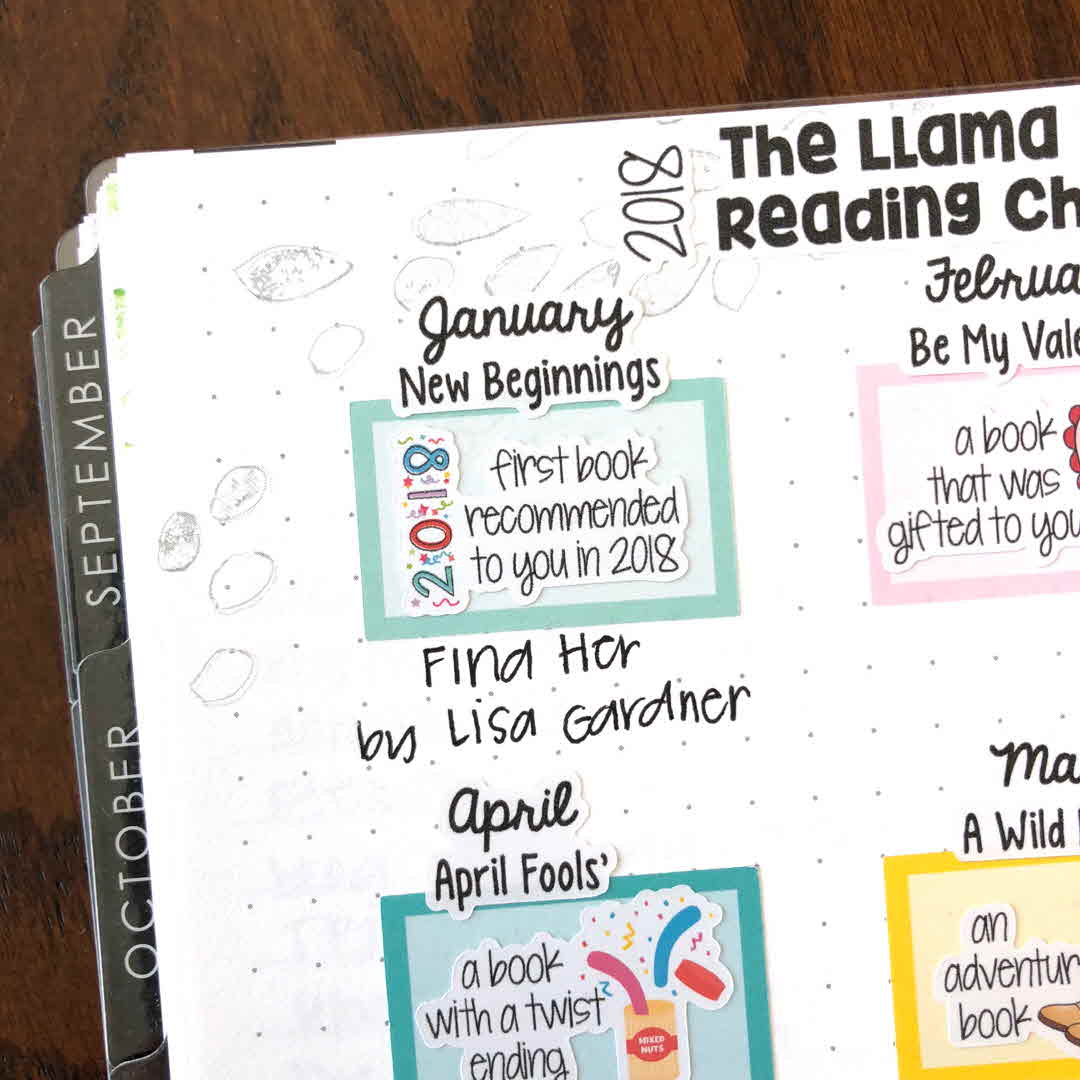 2018
The Llama
Reading Ch
January
New Beginnings
2018
first book
recommended
to you in 2018
Find Her
by Lisa Gardner
Februa
Be My Vale
a book
that was
gifted to you
April
April Fools'
a book
with a twist
ending
MIXED
NUTS
Ma
A Wild
an
adventur
book
SEPTEMBER
OCTOBER